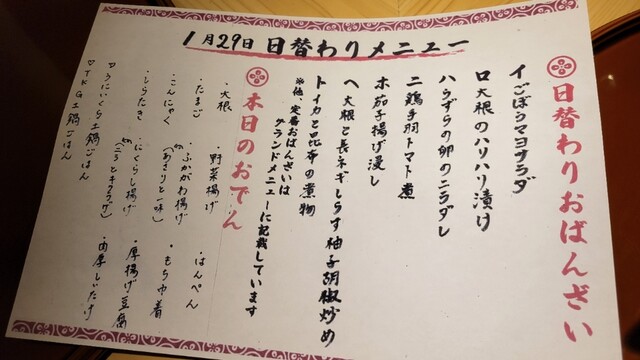 1月29日 日替わりメニュー
日替わりおばんざい
イ ごぼうマヨサラダ
ロ 大根のハリハリ漬け
ハ うずらの卵のニラダレ
ニ 鶏手羽トマト煮
ホ 茄子揚げ浸し
ヘ 大根と長ネギしらす柚子胡椒炒め
ト イカと昆布の煮物
※他、定番おばんざいは
グランドメニューに記載しています
本日のおでん
・大根
・たまご
・こんにゃく
・しらたき
・野菜揚げ
・ふかがわ揚げ
(あさりと一味)
・にくらし揚げ
・はんぺん
・もち巾着
・厚揚げ豆腐
・肉厚しいたけ
♡うにいくら土鍋ごはん
♡TKG土鍋ごはん